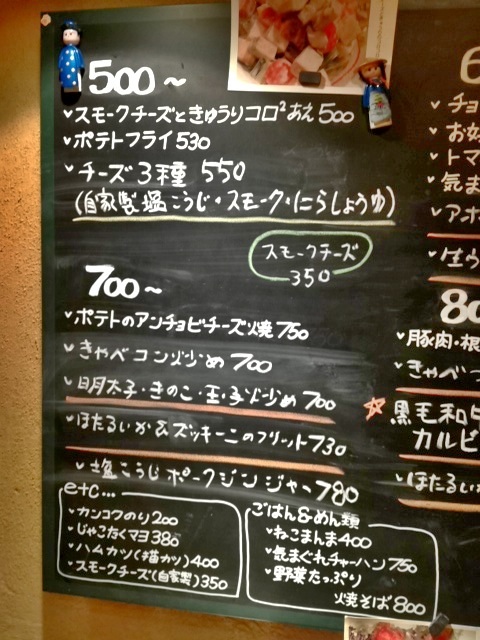 500~
スモークチーズときゅうりコロ²あえ 500
ポテトフライ 530
チーズ3種 550
(自家製塩こうじ・スモーク・にらしょうゆ)
スモークチーズ
350
700~
ポテトのアンチョビチーズ焼 750
きゃべコン火少め 700
明太子・きのこ・玉・子火少め 700
ほたるいか&ズッキーニのフリット 730
塩こうじポークジンジャー 780
etc...
カンコクのり 200
じゃこたくマヨ 380
ハムカツ(猫カツ) 400
スモークチーズ(自家製) 350
ごはん&めん類
ねこまんま 400
気まぐれチャーハン 750
野菜たっぷり
焼そば 800
6
チョ
お好
トマ
気ま
アボ
生ウ
80
豚肉・根
きゃべつ
黒毛和ビ
カルビ
ほたるい